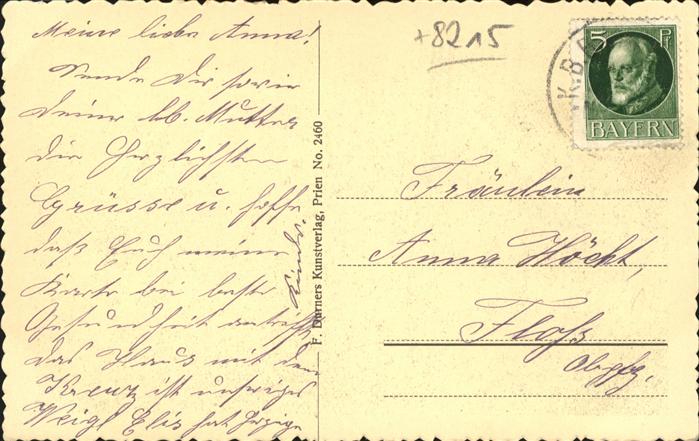 Meine liebe Anna!
Sende Dir sowie
Deiner lb. Mutter
die herzlichsten
Grüsse u. hoffe
daß Euch meine
Karte bei bester
Gesundheit antrifft
das Haus mit dem
Kreuz ist unseriges
Weigl Elis hat
F. Dörners Kunstverlag, Prien No. 2460
+8215
5 Pf
BAYERN
K.B.
Fräulein
Anna Höcht,
Floß
Obpfz.